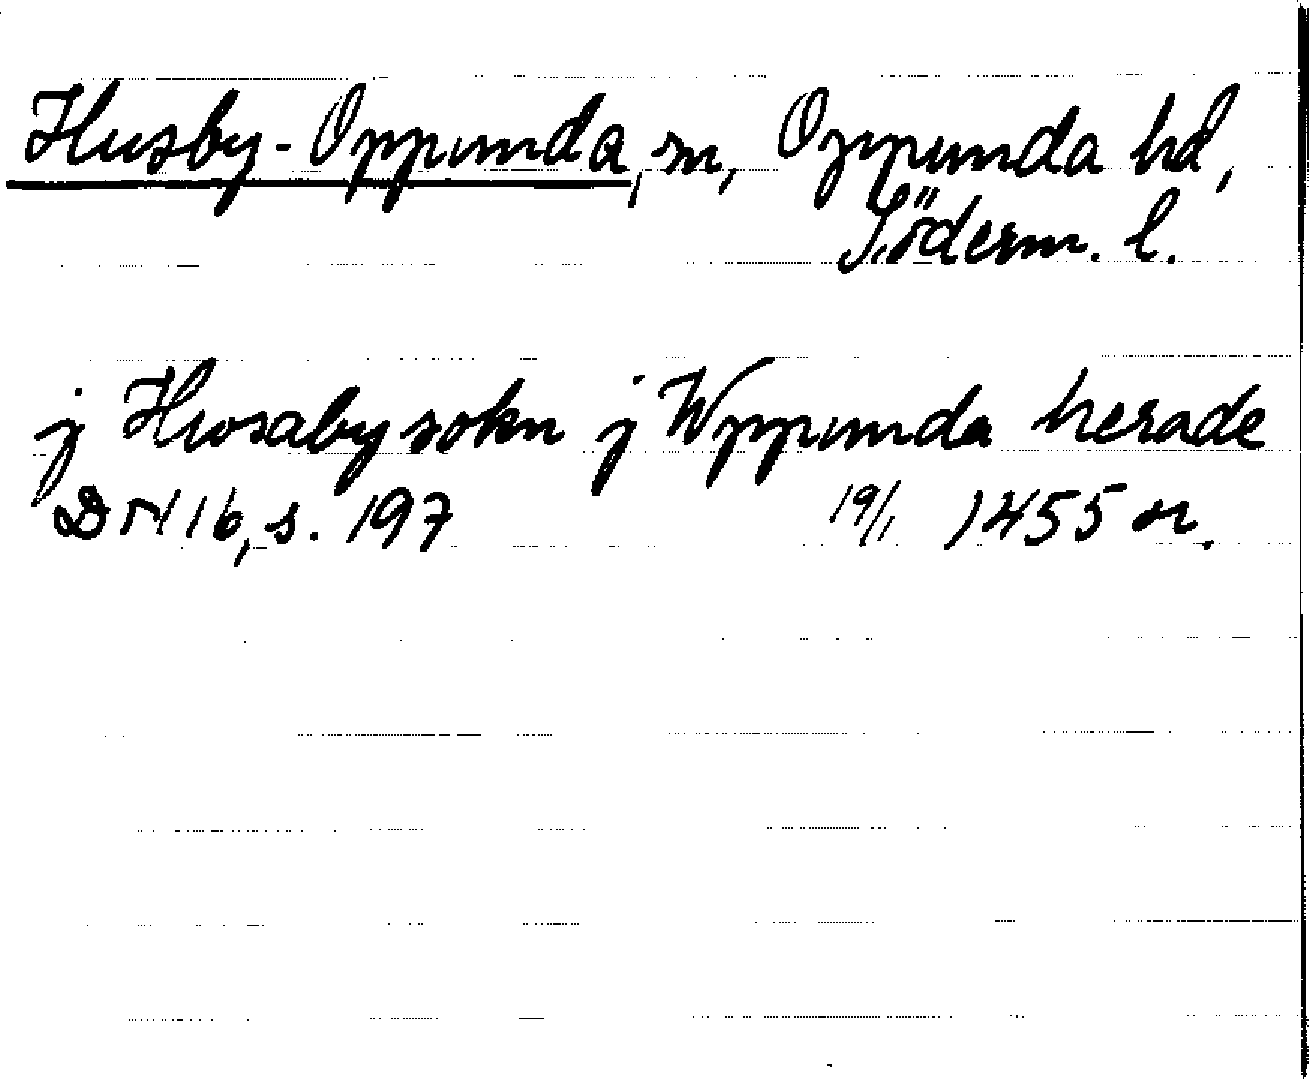 Husby-Oppunda, sn, Oppunda hd,
Söderm. l.
j Hwsaby sokn j Wppunda herade
DN 16, s. 197 19/1 1455 or.